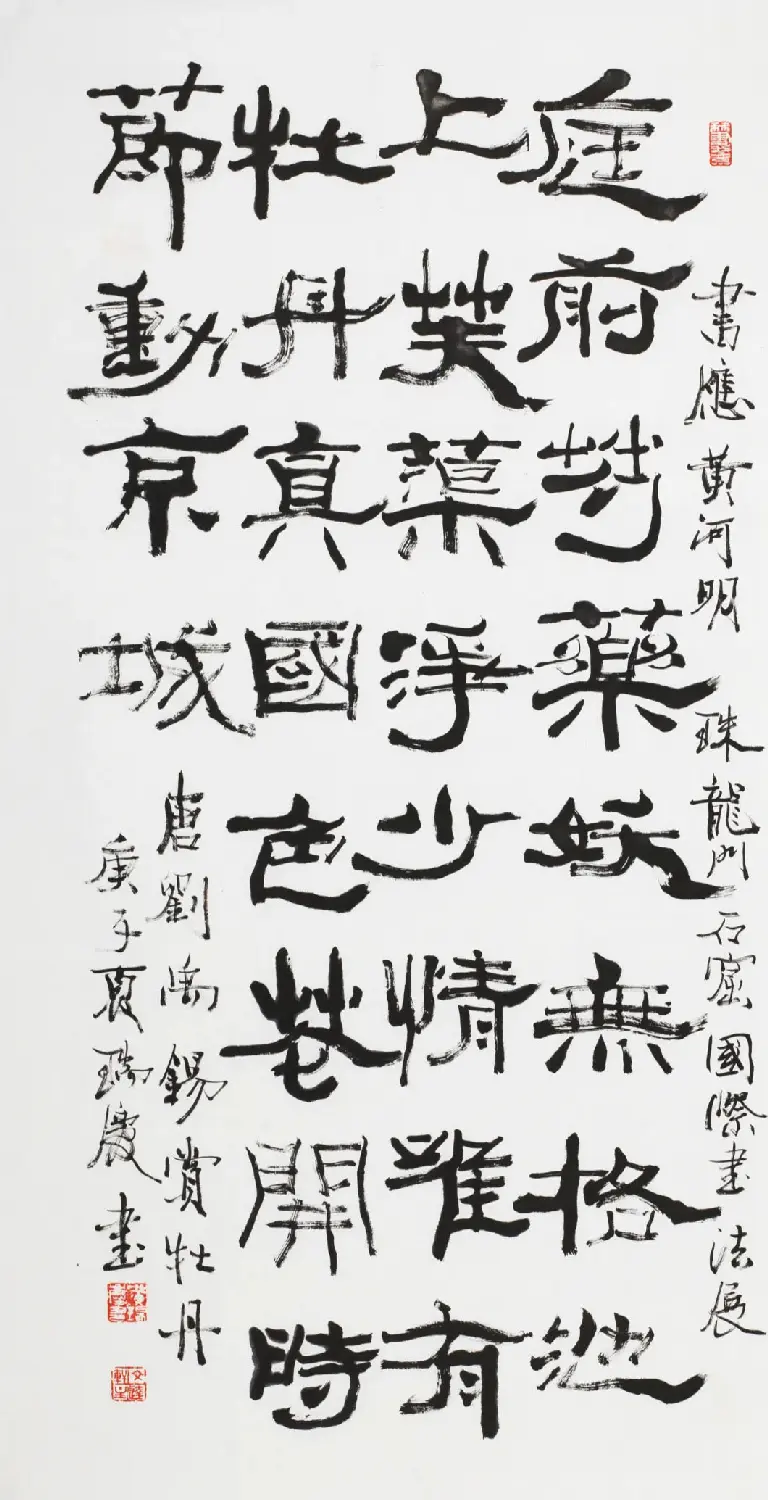 書應黃河明珠龍門石窟國際書法展
庭前芍藥妖無格池
上芙蕖淨少情唯有
牡丹真國色花開時
莭動京城
唐劉禹錫賞牡丹
庚子夏瑞書